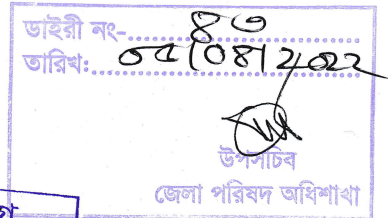 ডাইরী নং- ৪৩
তারিখ: ০৫/০৪/২০২২
উপসচিব
জেলা পরিষদ অধিশাখা